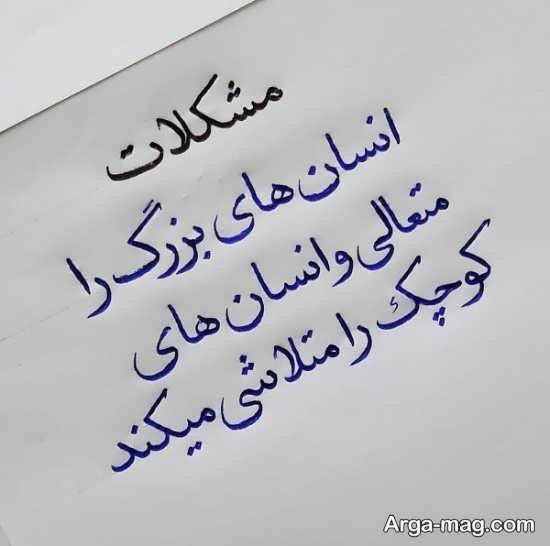 مشکلات
انسان های بزرگ را
متعالی و انسان های
کوچک را متلاشی میکند
Arga-mag.com